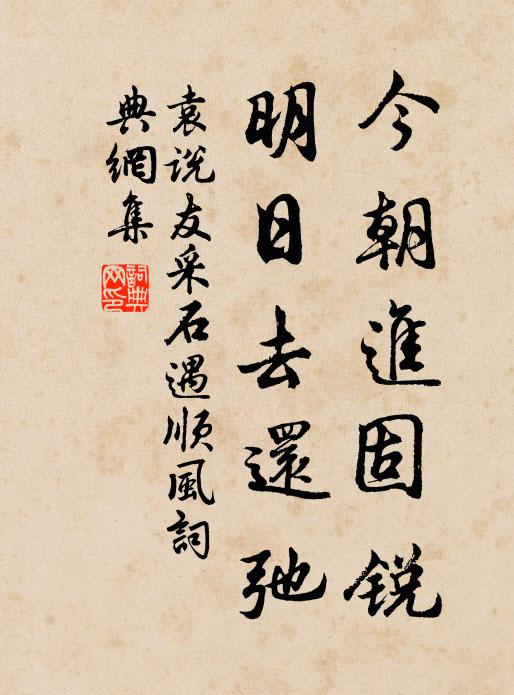 今朝進固銳
明日去還弛
袁說友采石遇順風詞
典網集
詞典網印